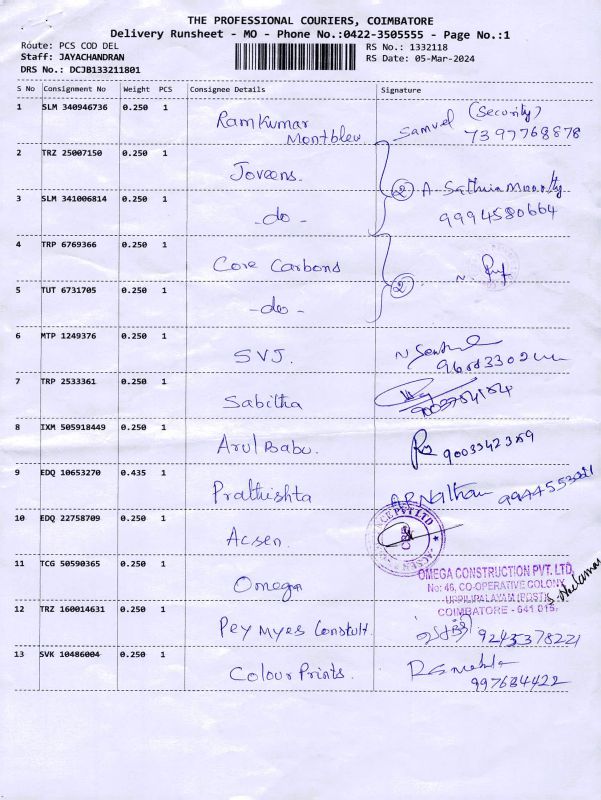 THE PROFESSIONAL COURIERS, COIMBATORE
Delivery Runsheet - MO - Phone No.:0422-3505555 - Page No.:1
Route: PCS COD DEL
RS No.: 1332118
Staff: JAYACHANDRAN
RS Date: 05-Mar-2024
DRS No.: DCJB133211801
S No Consignment No Weight PCS Consignee Details Signature
1 SLM 340946736 0.250 1 Ramkumar Samuel (Security)
Montbleu 7397768878
2 TRZ 25007150 0.250 1 Joveens.
3 SLM 341006814 0.250 1 -do- 2
9994580664
4 TRP 6769366 0.250 1 Core Carbons
5 TUT 6731705 0.250 1 -do- 2
6 MTP 1249376 0.250 1 SVJ.
7 TRP 2533361 0.250 1 Sabitha
8 IXM 505918449 0.250 1 Arul Babu. 9003342389
9 EDQ 10653270 0.435 1 Prathishta
10 EDQ 22758709 0.250 1 Acsen.
11 TCG 50590365 0.250 1 Omega
OMEGA CONSTRUCTION PVT. LTD.
No: 46, CO-OPERATIVE COLONY
UPPILIPALAYAM (POST),
COIMBATORE - 641 015.
12 TRZ 160014631 0.250 1 Pey Myes Constult. 9243378221
13 SVK 10486004 0.250 1 Colour Prints.
997684422